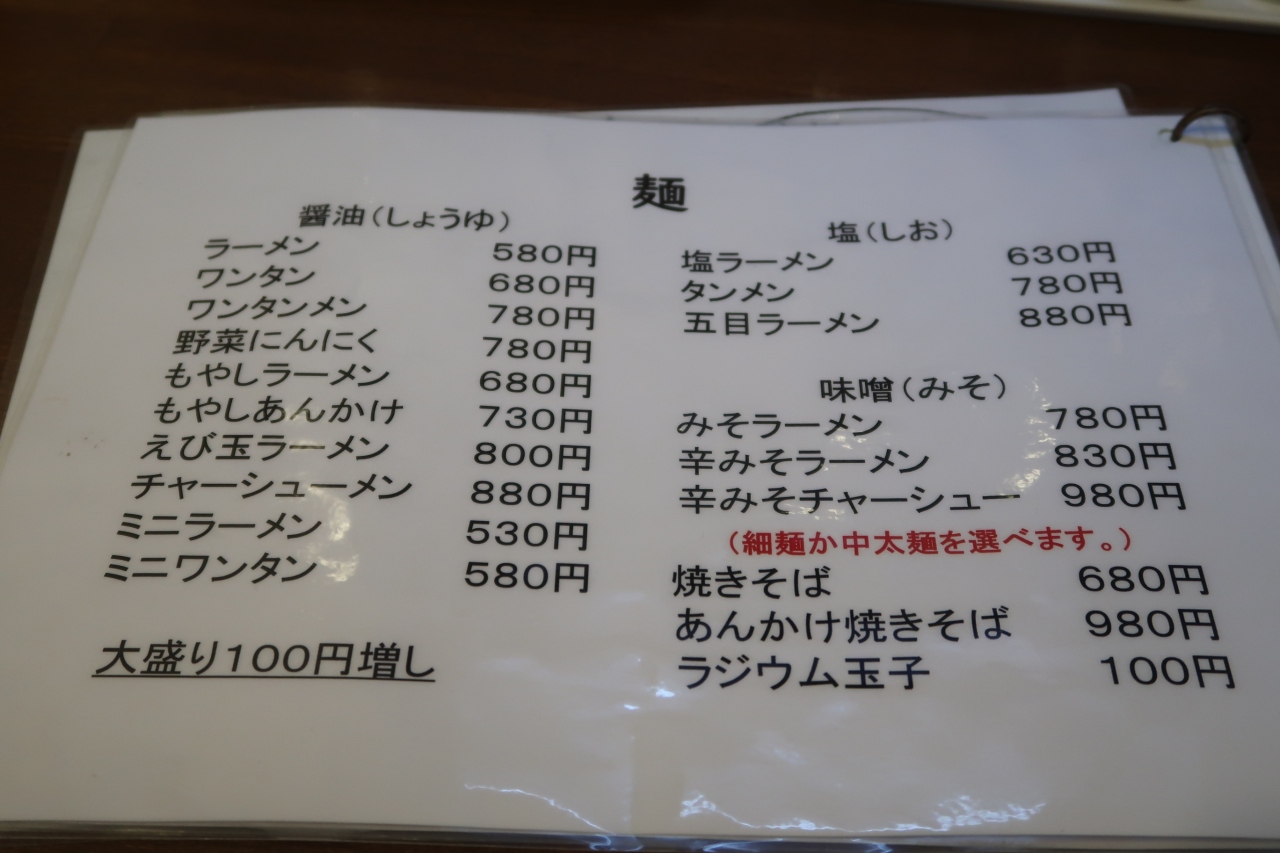 麺
醤油(しょうゆ)
ラーメン 580円
ワンタン 680円
ワンタンメン 780円
野菜にんにく 780円
もやしラーメン 680円
もやしあんかけ 730円
えび玉ラーメン 800円
チャーシューメン 880円
ミニラーメン 530円
ミニワンタン 580円
大盛り100円増し
塩(しお)
塩ラーメン 630円
タンメン 780円
五目ラーメン 880円
味噌(みそ)
みそラーメン 780円
辛みそラーメン 830円
辛みそチャーシュー 980円
(細麺か中太麺を選べます。)
焼きそば 680円
あんかけ焼きそば 980円
ラジウム玉子 100円